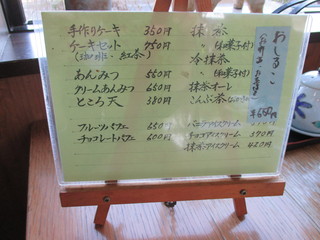 手作りケーキ 350円
ケーキセット 750円
(珈琲、紅茶)
あんみつ 550円
クリームあんみつ 650円
ところ天 380円
フルーツパフェ 650円
チョコレートパフェ 600円
抹茶
〃 (和菓子付)
冷抹茶
〃 (和菓子付)
抹茶オーレ
こんぶ茶
バニラアイスクリーム
チョコアイスクリーム 370円
抹茶アイスクリーム 420円
おしるこ